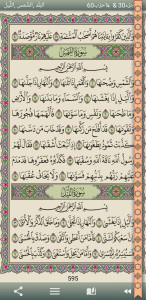 البلد,الشمس,الليل جزء30 & حزب60
وَٱلَّذِينَ كَفَرُوا۟ بِـَٔايَٰتِنَا هُمْ أَصْحَٰبُ ٱلْمَشْـَٔمَةِ ١٩ عَلَيْهِمْ نَارٌ مُّؤْصَدَةٌۢ ٢٠
سُورَةُ الشَّمْسِ
بِسْمِ ٱللَّهِ ٱلرَّحْمَٰنِ ٱلرَّحِيمِ
وَٱلشَّمْسِ وَضُحَىٰهَا ١ وَٱلْقَمَرِ إِذَا تَلَىٰهَا ٢ وَٱلنَّهَارِ إِذَا جَلَّىٰهَا ٣
وَٱلَّيْلِ إِذَا يَغْشَىٰهَا ٤ وَٱلسَّمَآءِ وَمَا بَنَىٰهَا ٥ وَٱلْأَرْضِ وَمَا
طَحَىٰهَا ٦ وَنَفْسٍ وَمَا سَوَّىٰهَا ٧ فَأَلْهَمَهَا فُجُورَهَا
وَتَقْوَىٰهَا ٨ قَدْ أَفْلَحَ مَن زَكَّىٰهَا ٩ وَقَدْ خَابَ مَن
دَسَّىٰهَا ١٠ كَذَّبَتْ ثَمُودُ بِطَغْوَىٰهَآ ١١ إِذِ ٱنۢبَعَثَ أَشْقَىٰهَا ١٢ فَقَالَ لَهُمْ
رَسُولُ ٱللَّهِ نَاقَةَ ٱللَّهِ وَسُقْيَٰهَا ١٣ فَكَذَّبُوهُ فَعَقَرُوهَا فَدَمْدَمَ
عَلَيْهِمْ رَبُّهُم بِذَنۢبِهِمْ فَسَوَّىٰهَا ١٤ وَلَا يَخَافُ عُقْبَٰهَا ١٥
سُورَةُ اللَّيْلِ
بِسْمِ ٱللَّهِ ٱلرَّحْمَٰنِ ٱلرَّحِيمِ
وَٱلَّيْلِ إِذَا يَغْشَىٰ ١ وَٱلنَّهَارِ إِذَا تَجَلَّىٰ ٢ وَمَا خَلَقَ ٱلذَّكَرَ وَٱلْأُنثَىٰٓ ٣
إِنَّ سَعْيَكُمْ لَشَتَّىٰ ٤ فَأَمَّا مَنْ أَعْطَىٰ وَٱتَّقَىٰ ٥ وَصَدَّقَ بِٱلْحُسْنَىٰ ٦
فَسَنُيَسِّرُهُۥ لِلْيُسْرَىٰ ٧ وَأَمَّا مَنۢ بَخِلَ وَٱسْتَغْنَىٰ ٨ وَكَذَّبَ بِٱلْحُسْنَىٰ ٩
595